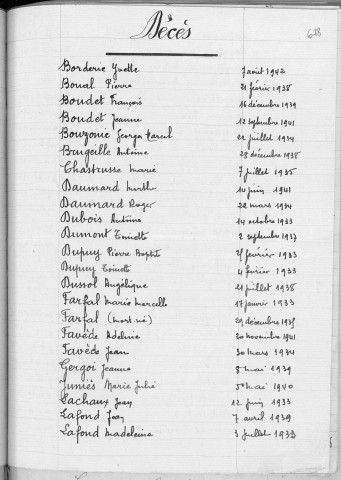 Décés
628
Borderie Yvette 7 août 1942
Boual Pierre 21 février 1938
Boudet François 16 décembre 1939
Boudet Jeanne 12 septembre 1941
Bouzonie Georges Marcel 22 juillet 1934
Brugeille Antoine 28 décembre 1938
Chastrusse Marie 7 juillet 1935
Daumard Marthe 14 juin 1941
Daumard Roger 22 mars 1934
Dubois Antoine 14 octobre 1933
Dumont Toinette 2 septembre 1937
Dupuy Pierre Baptiste 25 février 1933
Dupuy Toinette 4 février 1933
Dussol Angélique 21 juillet 1938
Farfal Marie Marcelle 17 janvier 1933
Farfal (mort-né) 29 décembre 1935
Favède Adeline 30 novembre 1941
Favède Jean 30 mars 1934
Gergoi Jeanne 8 mai 1939
Juniès Marie Julie 5 mai 1940
Lachaux Jean 12 juin 1933
Lafond Jean 7 avril 1939
Lafond Madeleine 3 juillet 1933